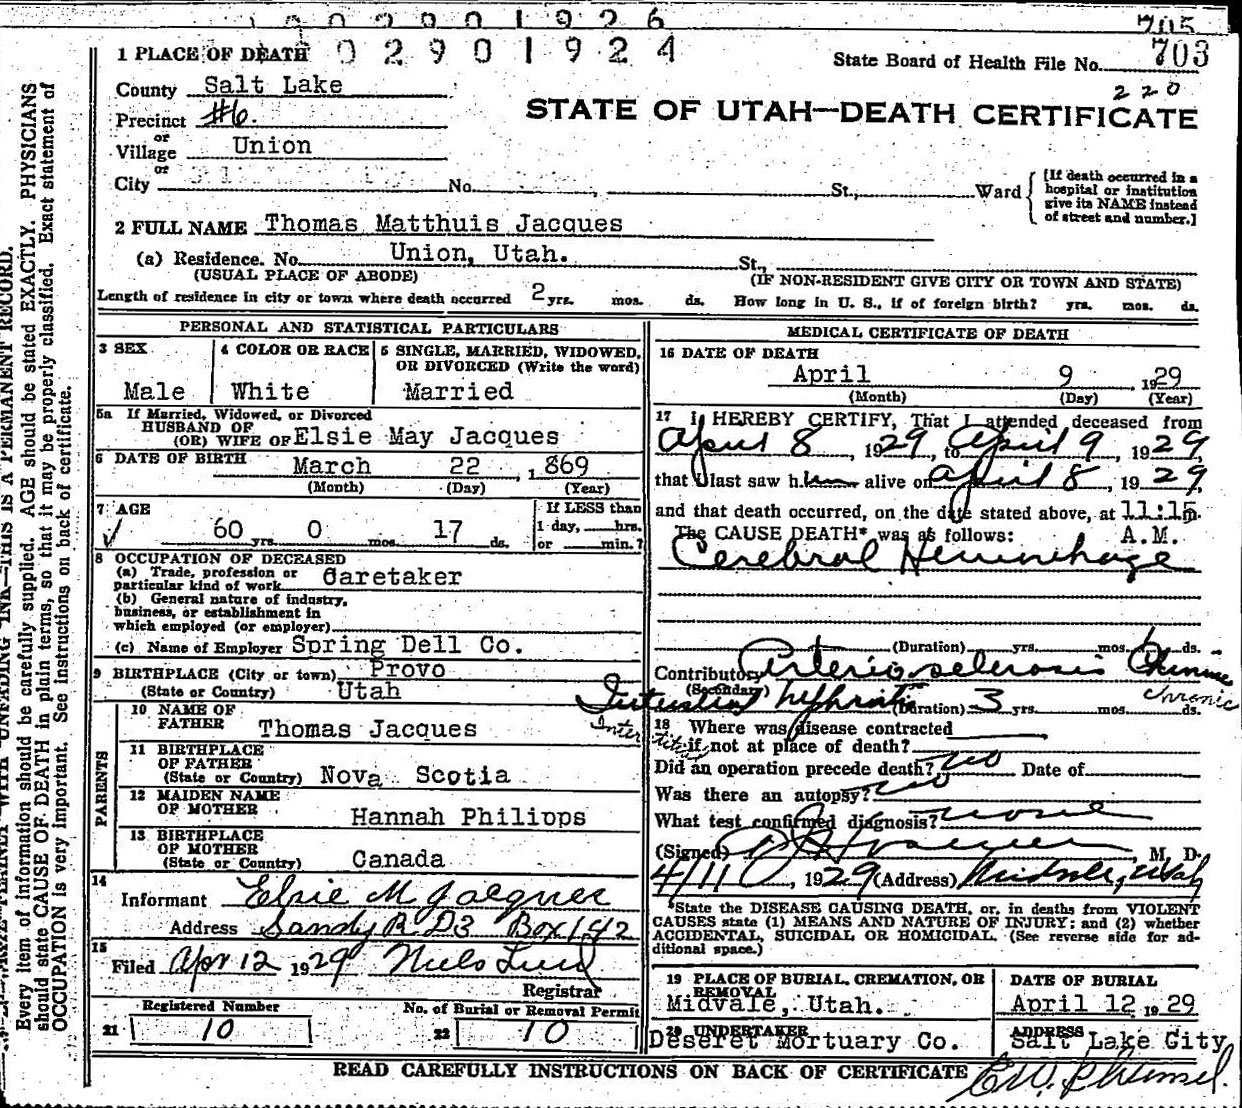 1 0 0 2 9 0 1 9 2 6
705
0 2 9 0 1 9 2 4
State Board of Health File No. 703
220
STATE OF UTAH—DEATH CERTIFICATE
1 PLACE OF DEATH
County Salt Lake
Precinct #6.
or
Village Union
or
City No. St., Ward
[If death occurred in a
hospital or institution
give its NAME instead
of street and number.]
2 FULL NAME Thomas Matthuis Jacques
(a) Residence. No. Union, Utah. St.,
(USUAL PLACE OF ABODE) (IF NON-RESIDENT GIVE CITY OR TOWN AND STATE)
Length of residence in city or town where death occurred 2 yrs. mos. ds. How long in U. S., if of foreign birth? yrs. mos. ds.
PERSONAL AND STATISTICAL PARTICULARS
3 SEX
Male
4 COLOR OR RACE
White
5 SINGLE, MARRIED, WIDOWED,
OR DIVORCED (Write the word)
Married
5a If Married, Widowed, or Divorced
HUSBAND OF
(OR) WIFE OF Elsie May Jacques
6 DATE OF BIRTH March 22, 1869
(Month) (Day) (Year)
7 AGE
60 yrs. 0 mos. 17 ds.
If LESS than
1 day, hrs.
or min.?
8 OCCUPATION OF DECEASED
(a) Trade, profession or
particular kind of work Caretaker
(b) General nature of industry,
business, or establishment in
which employed (or employer)
(c) Name of Employer Spring Dell Co.
9 BIRTHPLACE (City or town) Provo
(State or Country) Utah
PARENTS
10 NAME OF
FATHER Thomas Jacques
11 BIRTHPLACE
OF FATHER
(State or Country) Nova Scotia
12 MAIDEN NAME
OF MOTHER Hannah Philipps
13 BIRTHPLACE
OF MOTHER
(State or Country) Canada
14
Informant Elsie M Jacques
Address Sandy R D3 Box 142
15
Filed Apr 12 1929 Niels Lind
Registrar
Registered Number
21 10
No. of Burial or Removal Permit
22 10
MEDICAL CERTIFICATE OF DEATH
16 DATE OF DEATH
April 9 1929
(Month) (Day) (Year)
17 I HEREBY CERTIFY, That I attended deceased from
April 8, 1929, to April 9, 1929,
that I last saw him alive on April 8, 1929,
and that death occurred, on the date stated above, at 11:15 m.
The CAUSE DEATH* was as follows: A.M.
Cerebral Hemorrhage
(Duration) yrs. mos. ds.
Contributory Arterio sclerosis Chronic
(Secondary)
Interstitial Nephritis (Duration) 3 yrs. mos. ds.
Chronic
Inter
stitial
18 Where was disease contracted
if not at place of death?
Did an operation precede death? no Date of
Was there an autopsy? no
What test confirmed diagnosis? none
(Signed) , M. D.
4/11, 1929 (Address) Midvale, Utah
*State the DISEASE CAUSING DEATH, or, in deaths from VIOLENT
CAUSES state (1) MEANS AND NATURE OF INJURY; and (2) whether
ACCIDENTAL, SUICIDAL OR HOMICIDAL. (See reverse side for ad-
ditional space.)
19 PLACE OF BURIAL, CREMATION, OR
REMOVAL
Midvale, Utah.
DATE OF BURIAL
April 12 1929
20 UNDERTAKER
Deseret Mortuary Co.
ADDRESS
Salt Lake City
READ CAREFULLY INSTRUCTIONS ON BACK OF CERTIFICATE
THIS IS A PERMANENT RECORD.
Every item of information should be carefully supplied. AGE should be stated EXACTLY. PHYSICIANS
should state CAUSE OF DEATH in plain terms, so that it may be properly classified. Exact statement of
OCCUPATION is very important. See instructions on back of certificate.